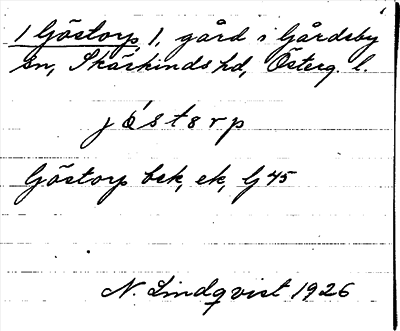 1 Göstorp, 1, gård i Gårdeby
sn, Skärkinds hd, Österg. l.
jö́storp
Göstorp bek, ek, Gj 45
N. Lindqvist 1926